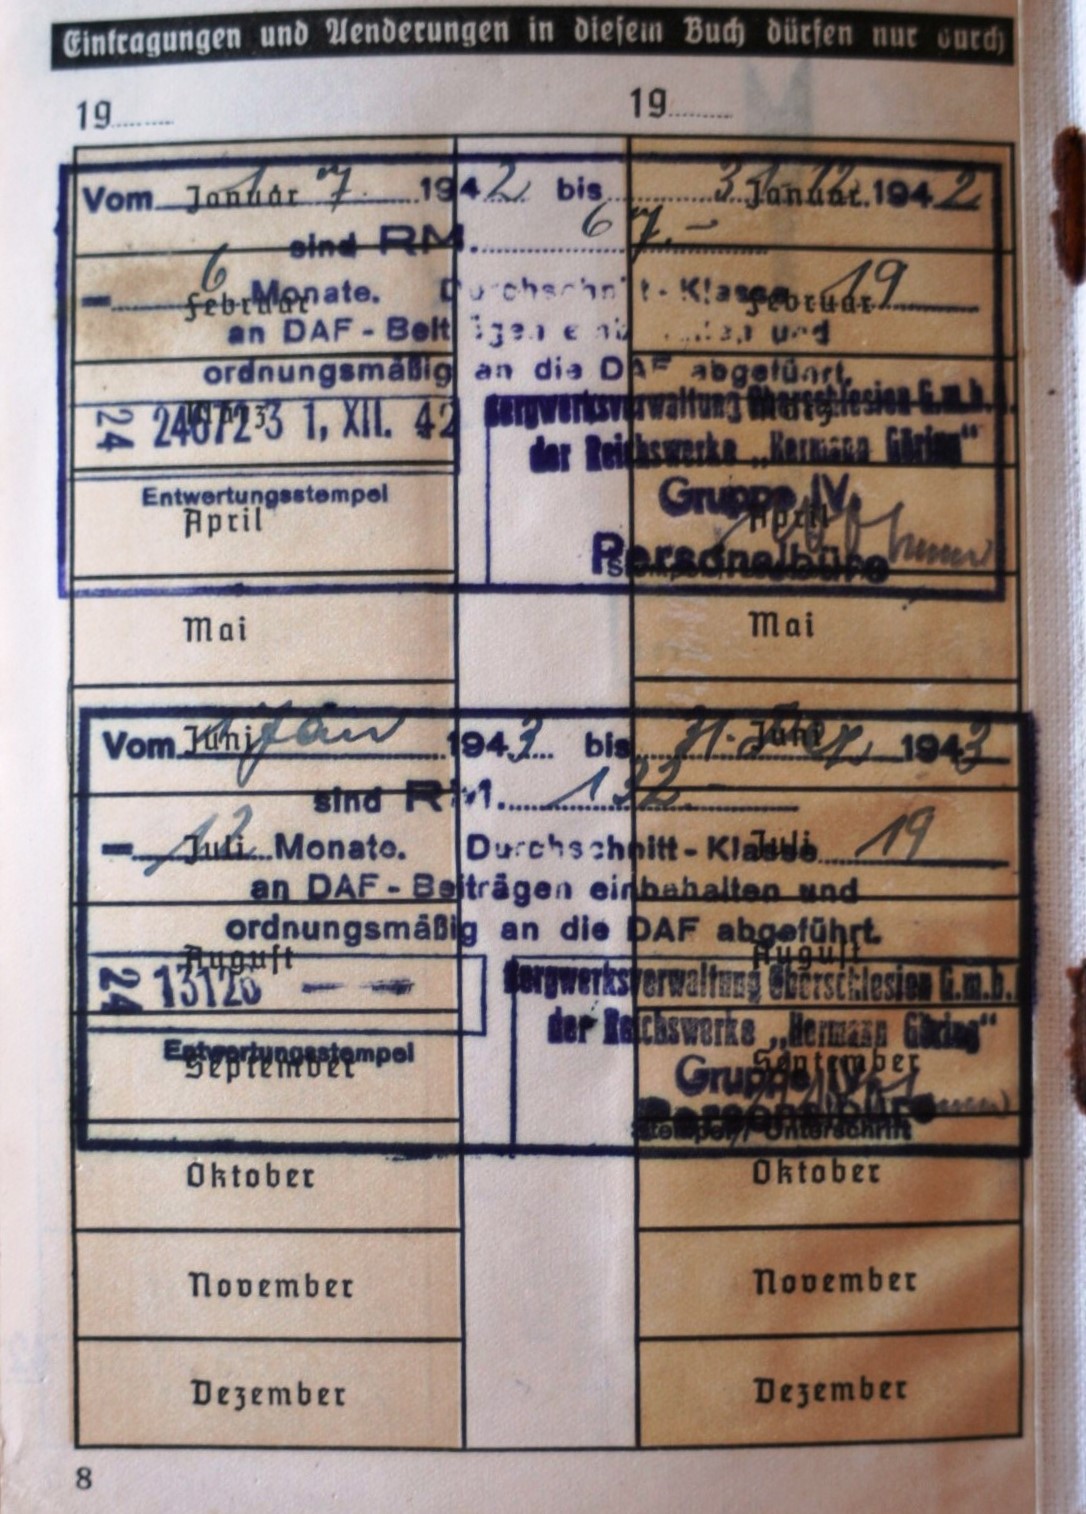 Eintragungen und Aenderungen in diesem Buch dürfen nur durch
19........ 19........
Januar Januar
Vom 1. 7. 1942 bis 31. 12. 1942
sind RM. 67.-
Februar Februar
- 6 Monate. Durchschnitt-Klasse 19
an DAF-Beiträgen einbehalten und
ordnungsmäßig an die DAF abgeführt.
24 1, XII. 42 Bergwerksverwaltung Oberschlesien G.m.b.H.
der Reichswerke „Hermann Göring“
Entwertungsstempel Gruppe IV.
April April
Personalbüro
Mai Mai
Juni Juni
Vom 1. Jan 1943 bis 31. Dez. 1943
sind RM. 132.-
Juli Juli
- 12 Monate. Durchschnitt-Klasse 19
an DAF-Beiträgen einbehalten und
ordnungsmäßig an die DAF abgeführt.
August August
24 13126 — — Bergwerksverwaltung Oberschlesien G.m.b.
der Reichswerke „Hermann Göring“
Entwertungsstempel
September September
Gruppe IV.
Personalbüro
Stempel / Unterschrift
Oktober Oktober
November November
Dezember Dezember
8